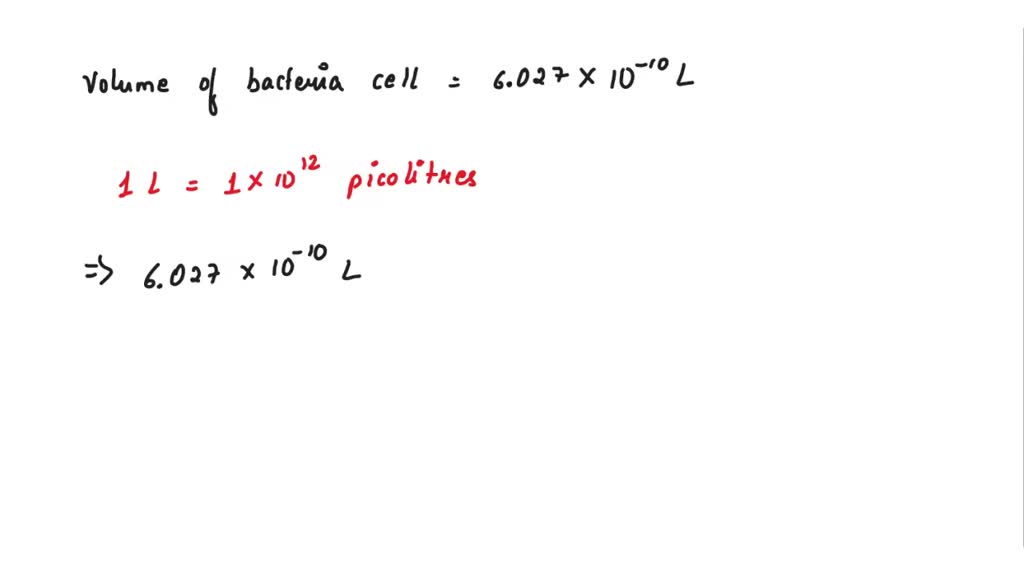 Volume of bacteria cell = 6.027 × 10⁻¹⁰ L
1 L = 1 × 10¹² picolitres
=> 6.027 × 10⁻¹⁰ L